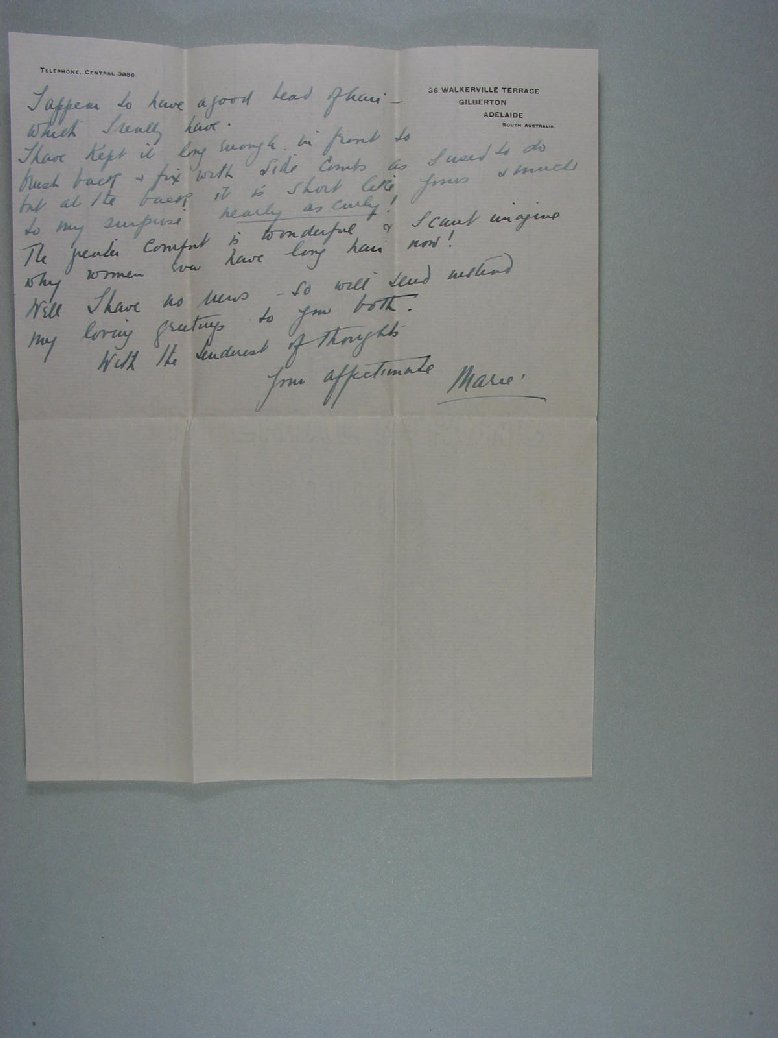 TELEPHONE, CENTRAL
36 WALKERVILLE TERRACE
GILBERTON
ADELAIDE
SOUTH AUSTRALIA
I appear to have a good head of hair –
which I really have.
I have kept it long enough in front to
brush back & fix with side combs as I used to do
but at the back it is short like yours & much
to my surprise nearly as curly!
The comfort is wonderful & I cant imagine
why women ever have long hair now!
Well I have no news – so will send
my loving greetings to you both.
With the tenderest of thoughts
Your affectionate Marie.